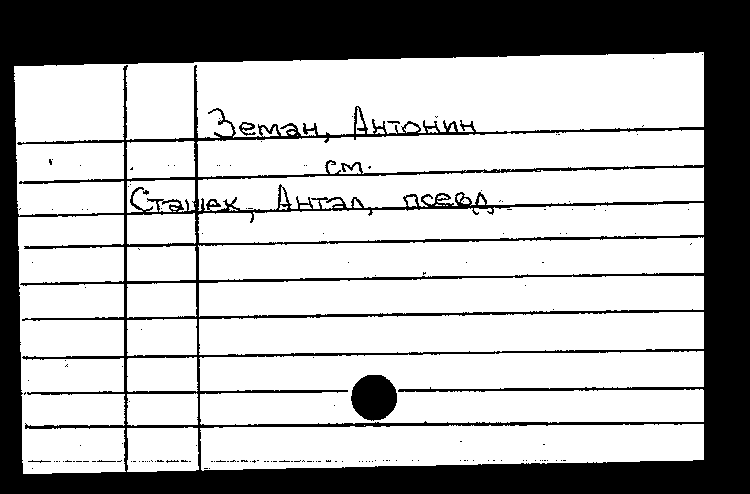 Земан, Антонин
см.
Сташек, Антал, псевд.